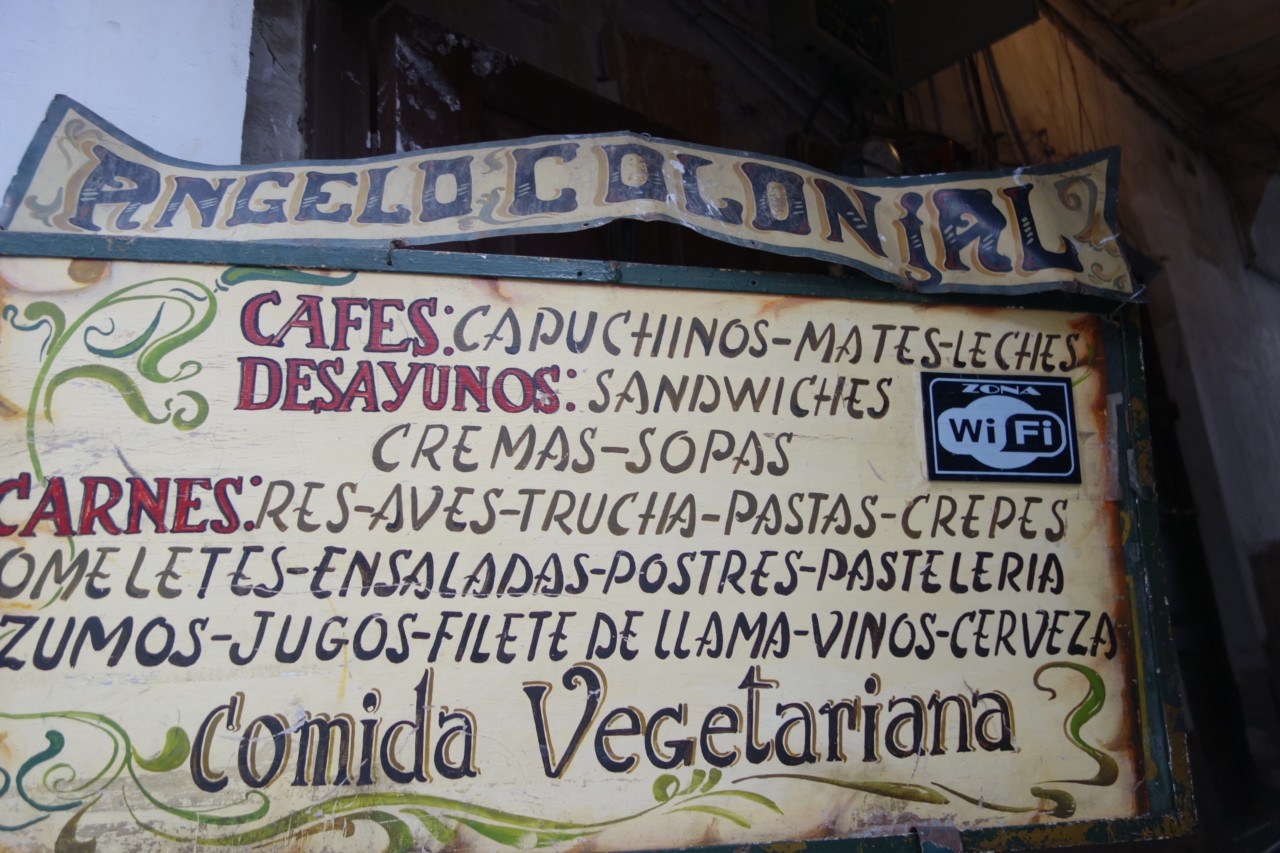 ANGELO COLONIAL
CAFES: CAPUCHINOS-MATES-LECHES
DESAYUNOS: SANDWICHES
ZONA
WiFi
CREMAS-SOPAS
CARNES: RES-AVES-TRUCHA-PASTAS-CREPES
OMELETES-ENSALADAS-POSTRES-PASTELERIA
ZUMOS-JUGOS-FILETE DE LLAMA-VINOS-CERVEZA
Comida Vegetariana